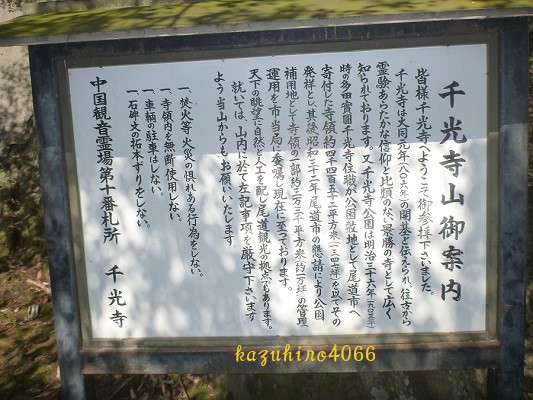 千光寺山御案内
皆様千光寺へようこそ御参拝下さいました。
千光寺は大同元年(八〇六年)の開基と伝えられ、往古から
霊験あらたかな信仰と比類のない景勝の寺として広く
知られております。又千光寺公園は明治三十六年(一九〇三年)
時の多田實圓千光寺住職が公園敷地として尾道市へ
寄付した寺領約四千四百五十二平方米を以てその
発祥とし、其後昭和三十二年尾道市の懇請により公園
補用地として寺領の一部約三万三千平方米(約一万坪)の管理
運用を市当局に委嘱し現在に至っております。
天下の眺望に自然と人工を配し尾道観光の拠点でもあります。
就いては、山内に於て左記事項を厳守下さいます
よう当山からもお願いいたします
一、焚火等火災の惧れある行為をしない。
一、寺領内を無断使用しない。
一、車輌の駐車はしない。
一、石碑文の拓本すりをしない。
中国観音霊場第十番札所 千光寺
kazuhiro4066